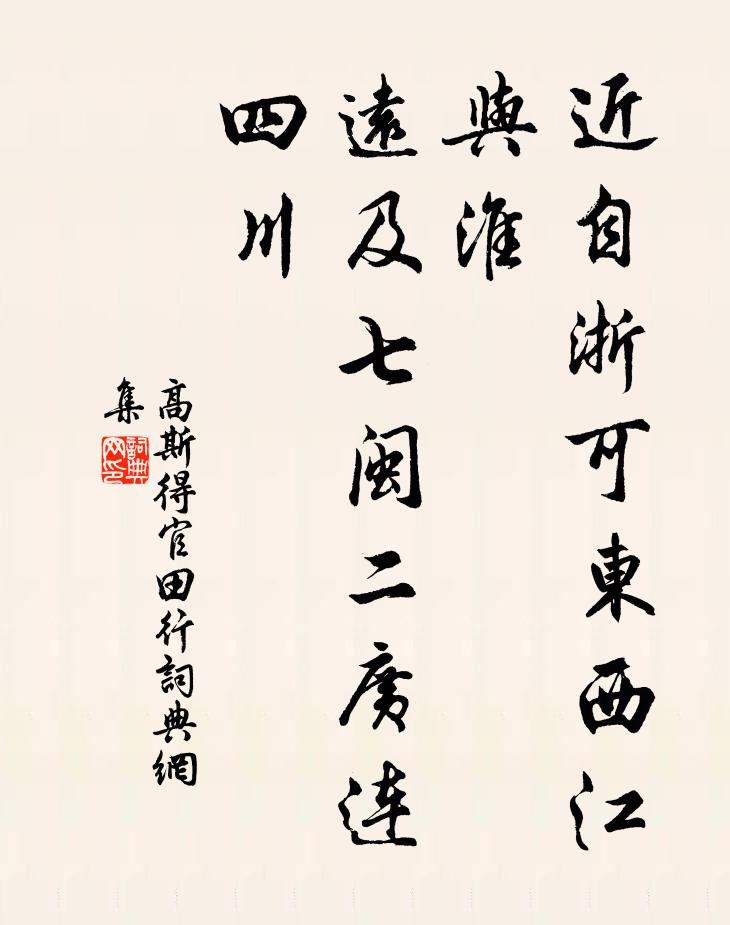 近自浙可東西江
與淮
遠及七閩二廣連
四川
高斯得官田行詞典網
集
詞典
网印